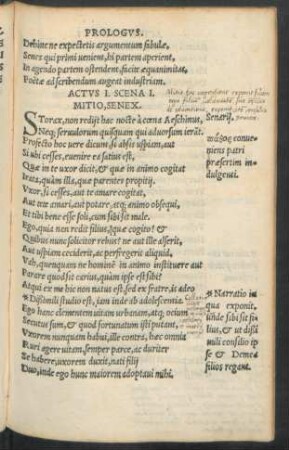 PROLOGVS.
Dehinc ne expectetis argumentum fabulæ,
Senes qui primi venient, hi partem aperient,
In agendo partem ostendent, facite æquanimitas,
Poëtæ ad scribendum augeat industriam.
ACTVS I. SCENA I.
MITIO, SENEX.
STorax, non redijt hac nocte à cœna Aeschinus,
Neq; seruulorum quisquam qui aduorsum ierāt.
Profecto hoc vere dicunt, si absis uspiam, aut
Si ubi cesses, euenire ea satius est,
Quæ in te uxor dicit, & quæ in animo cogitat
Irata, quàm illa, quæ parentes propitij.
Vxor, si cesses, aut te amare cogitat,
Aut te amari, aut potare, atq; animo obsequi,
Et tibi bene esse soli, cum sibi sit male.
Ego, quia non redit filius, quæ cogito! &
Quibus nunc sollicitor rebus! ne aut ille alserit,
Aut uspiam ceciderit, ac perfregerit aliquid.
Vah, quenquam ne hominē in animo instituere aut
Parare quod sit carius, quàm ipse est sibi?
Atqui ex me hic non natus est, sed ex fratre, is adeo
* Dissimili studio est, iam inde ab adolescentia.
Ego hanc clementem uitam urbanam, atq; ocium
Secutus sum, & quod fortunatum isti putant,
Vxorem nunquam habui, ille contra, hæc omnia
Ruri agere uitam, semper parce, ac duriter
Se habere, uxorem duxit, nati filij
Duo, inde ego hunc maiorem adoptaui mihi.
Senarij.
conue-
niens patri
præsertim in-
dulgenti.
* Narratio in
qua exponit,
unde sibi sit fi-
lius, & ut dissi
mili consilio ip
se & Demea
filios regant.